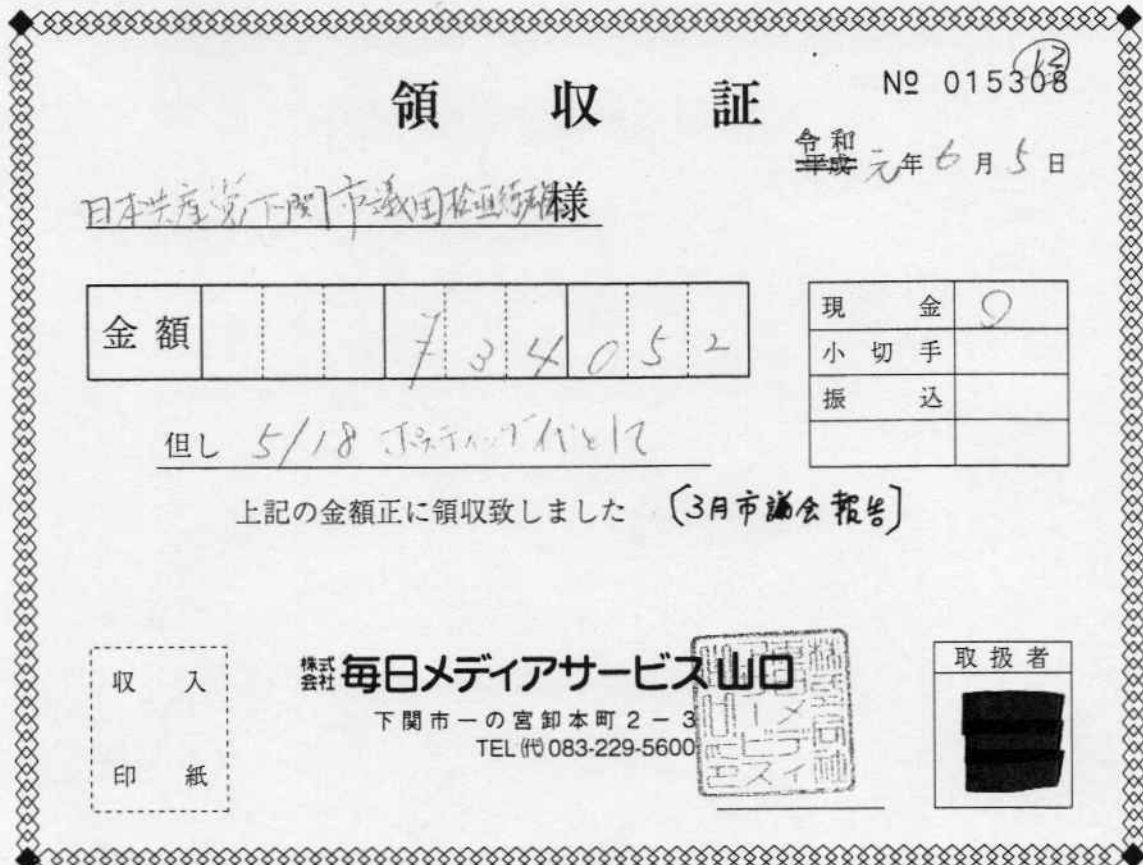 ⑫
領収証
№ 015308
令和
平成 元年 6月 5日
日本共産党下関市議団 様
金額 ¥34052
現金 〇
小切手
振込
但し 5/18 ポスティング代として
上記の金額正に領収致しました 〔3月市議会報告〕
収入
印紙
株式会社 毎日メディアサービス山口
下関市一の宮卸本町2-3
TEL(代)083-229-5600
取扱者